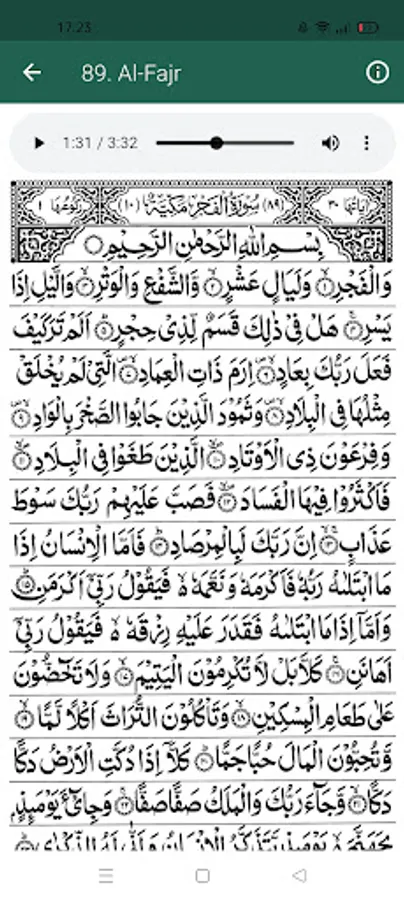 17:23
89. Al-Fajr
1:31 / 3:32
اٰيَاتُهَا ٣٠ (٨٩) سُوْرَةُ الْفَجْرِ مَكِّيَّةٌ (١٠) رُكُوْعُهَا ١
بِسْمِ اللّٰهِ الرَّحْمٰنِ الرَّحِيْمِ
وَالْفَجْرِ ۙ‏﴿۱﴾ وَلَيَالٍ عَشْرٍ ۙ‏﴿۲﴾ وَّالشَّفْعِ وَالْوَتْرِ ۙ‏﴿۳﴾ وَالَّيْلِ اِذَا
يَسْرِ ۚ‏﴿۴﴾ هَلْ فِيْ ذٰلِكَ قَسَمٌ لِّذِيْ حِجْرٍ ؕ‏﴿۵﴾ اَلَمْ تَرَ كَيْفَ
فَعَلَ رَبُّكَ بِعَادٍ ۙ‏﴿۶﴾ اِرَمَ ذَاتِ الْعِمَادِ ۙ‏﴿۷﴾ الَّتِيْ لَمْ يُخْلَقْ
مِثْلُهَا فِي الْبِلَادِ ۙ‏﴿۸﴾ وَثَمُوْدَ الَّذِيْنَ جَابُوا الصَّخْرَ بِالْوَادِ ۙ‏﴿۹﴾
وَفِرْعَوْنَ ذِي الْاَوْتَادِ ۙ‏﴿۱۰﴾ الَّذِيْنَ طَغَوْا فِي الْبِلَادِ ۙ‏﴿۱۱﴾
فَاَكْثَرُوْا فِيْهَا الْفَسَادَ ۙ‏﴿۱۲﴾ فَصَبَّ عَلَيْهِمْ رَبُّكَ سَوْطَ
عَذَابٍ ۚ‏﴿۱۳﴾ اِنَّ رَبَّكَ لَبِالْمِرْصَادِ ؕ‏﴿۱۴﴾ فَاَمَّا الْاِنْسَانُ اِذَا
مَا ابْتَلٰىهُ رَبُّهٗ فَاَكْرَمَهٗ وَنَعَّمَهٗ ۙ فَيَقُوْلُ رَبِّيْٓ اَكْرَمَنِ ؕ‏﴿۱۵﴾
وَاَمَّآ اِذَا مَا ابْتَلٰىهُ فَقَدَرَ عَلَيْهِ رِزْقَهٗ ۙ فَيَقُوْلُ رَبِّيْٓ
اَهَانَنِ ۚ‏﴿۱۶﴾ كَلَّا بَلْ لَّا تُكْرِمُوْنَ الْيَتِيْمَ ۙ‏﴿۱۷﴾ وَلَا تَحٰٓضُّوْنَ
عَلٰى طَعَامِ الْمِسْكِيْنِ ۙ‏﴿۱۸﴾ وَتَاْكُلُوْنَ التُّرَاثَ اَكْلًا لَّمًّا ۙ‏﴿۱۹﴾
وَّتُحِبُّوْنَ الْمَالَ حُبًّا جَمًّا ؕ‏﴿۲۰﴾ كَلَّآ اِذَا دُكَّتِ الْاَرْضُ دَكًّا
دَكًّا ۙ‏﴿۲۱﴾ وَّجَآءَ رَبُّكَ وَالْمَلَكُ صَفًّا صَفًّا ۚ‏﴿۲۲﴾ وَجِايْٓءَ يَوْمَئِذٍۭ
بِجَهَنَّمَ ۙ يَوْمَئِذٍ يَّتَذَكَّرُ الْاِنْسَانُ وَاَنّٰى لَهُ الذِّكْرٰى ؕ‏﴿۲۳﴾